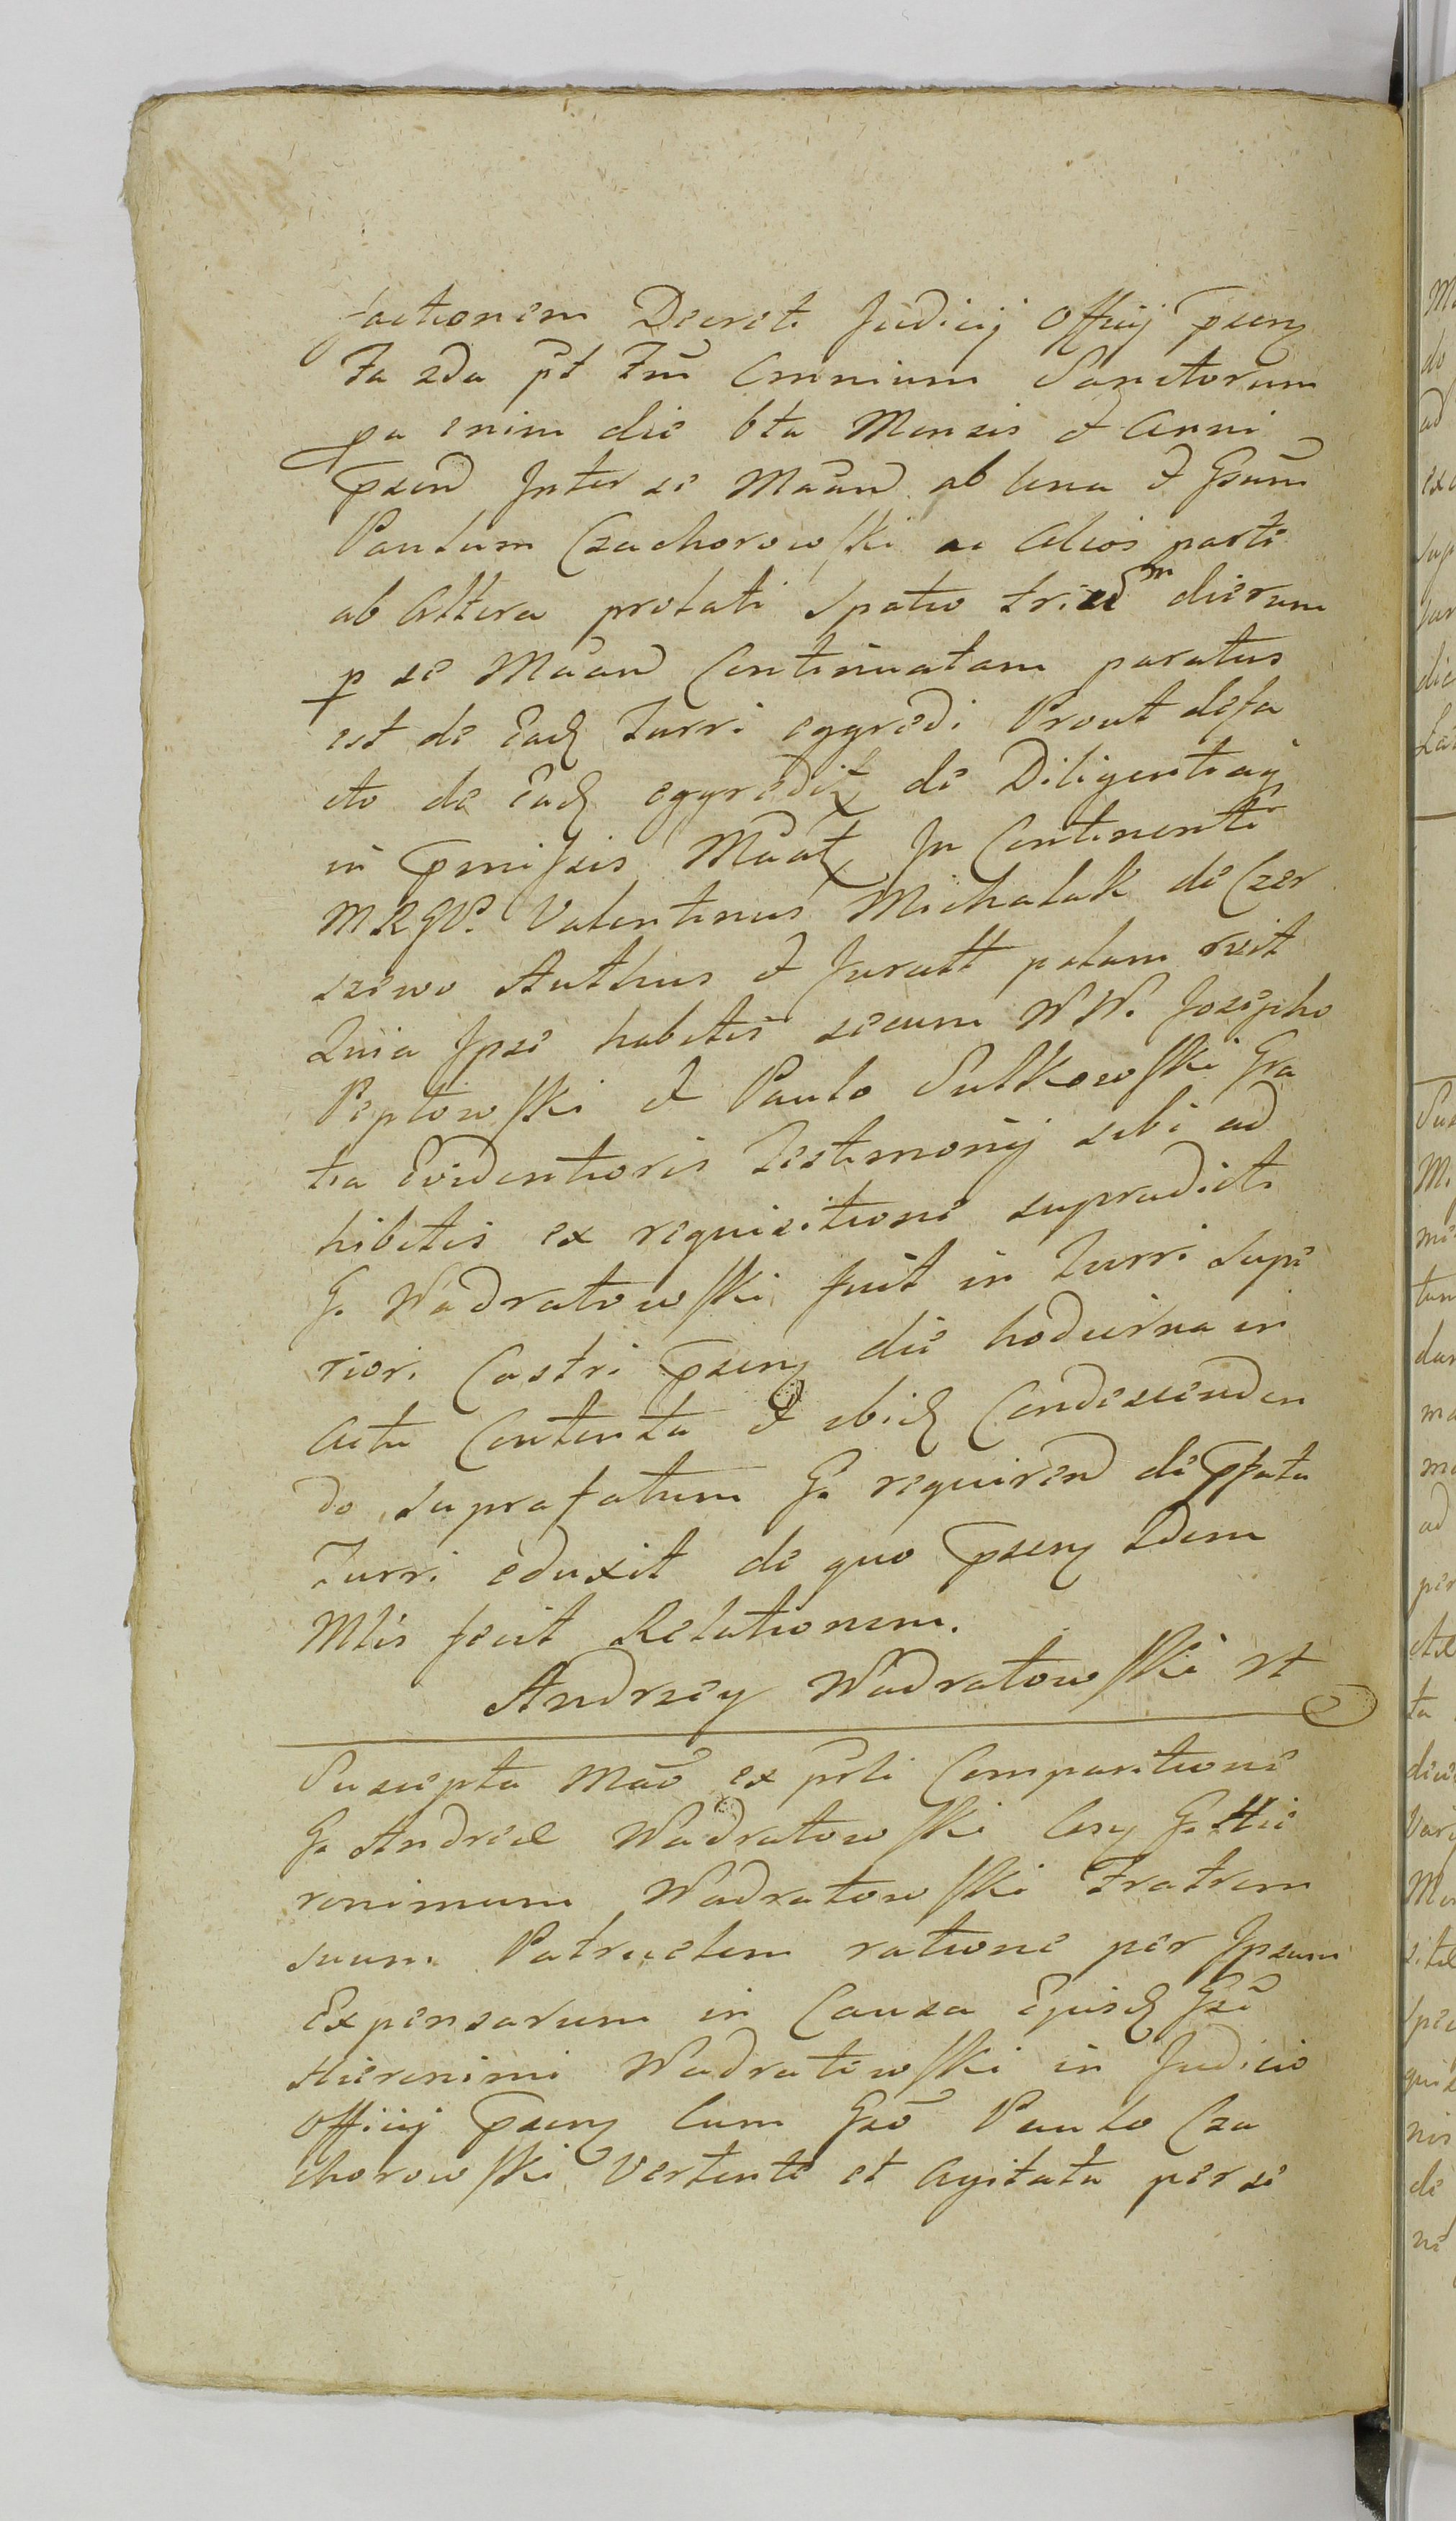 factionem Decreti Judicij Officij psens
Fa 2da pst Ftū Omnium Sanctorum
pa enim die 6ta Mensis et Anni
psend Inter se Maand ab una et Gsum
Paulum Czachorowski ac Alios parte
ab Altera prolati spatio trium dierum
p se Maand Continuatam paratus
est de Ead Turri eggredi Prout defa
cto de Ead eggredit de Diligentiaq
in pmissis Maat In Continenti
MRGP. Valentinus Michalak de Czer
szewo Authus et Juratt palam rzit
Quia Ipse habitis secum WW. Josepho
Peptowski et Paulo Sutkowski Gra
tia Evidentioris Testimonij sibi ad
hibitis ex requisitione supradicti
G. Wadratowski fuit in Turri Supe
riori Castri psens die hodierna in
actu Contenta et ibid Condescenden
do suprafatum G. requirend de pfata
Turri eduxit de quo psens Idem
Mlis fecit Relationem.
Andrzey Wadratowski
Suscepta Mao ex psti Comparitione
G. Andreæ Wadratowski G. Hie
ronimum Wadratowski Fratrem
suum Patruelem ratione per Ipsum
Expensarum in Causa Ejusd Gsi
Hieronimi Wadratowski in Judicio
Officij psens cum Gso Paulo Cza
chorowski Vertente et Agitata per se